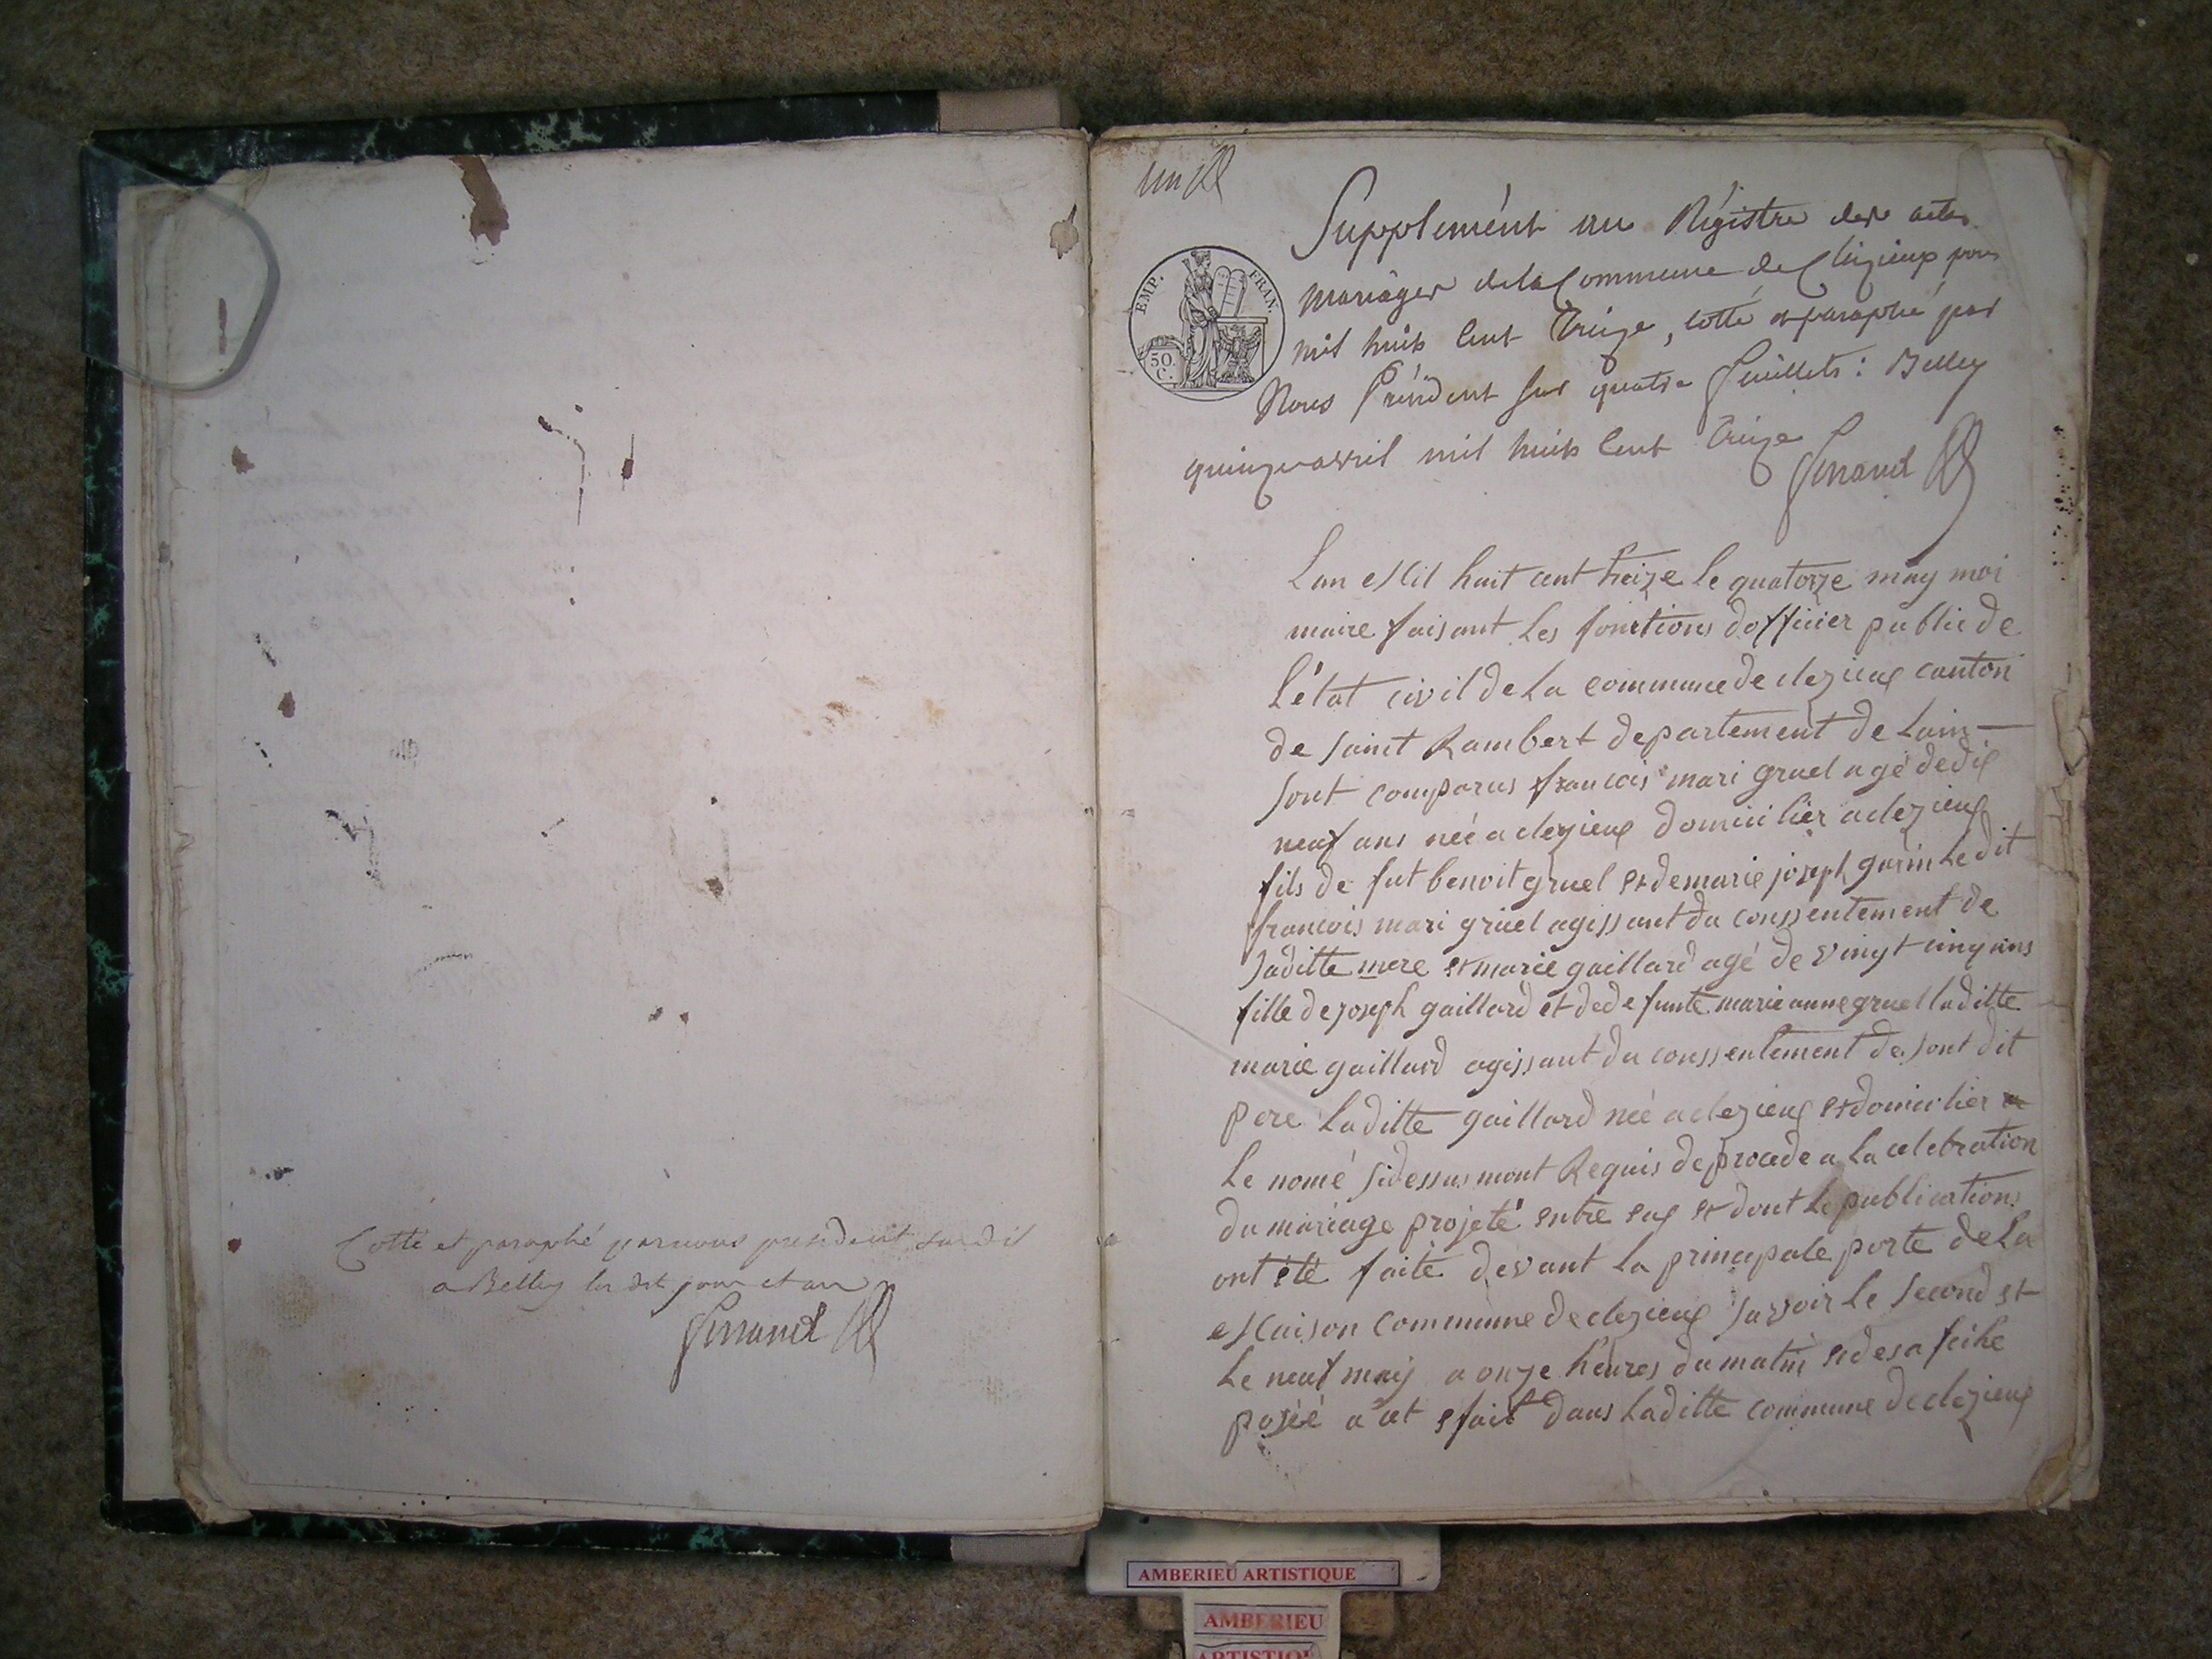 Cotté et paraphé par nous président susdit
a Belley les dit jour et an
un
Supplément au Régistre des actes
mariages de la Commune de Clézieux pour
mil huit Cent Treize, cotté et paraphé par
Nous Président sur quatre feuillets : Belley
quinze avril mil huit Cent Treize
EMP. FRAN.
50 C.
Lan Mil huit cent treize le quatorze may moi
maire faisant les fonctions dofficier public de
L'état civil de La commune de clezieux canton
de saint Rambert departement de Lain
sont comparus francois mari gruel agé de dix
neuf ans neé a clezieux domicilier a clezieux
fils de fut benoit gruel et de marie joseph guerin Le dit
francois mari gruel agissant du conssentement de
saditte mere et marie gaillard agé de vingt cinq ans
fille de joseph gaillard et de defunte marie anne gruel laditte
marie gaillard agissant du conssentement de sont dit
pere Laditte gaillard neé a clezieux et domicilier
Le nomé sidessus mont Requis de procede a La celebration
du mariage projeté entre eux et dont Le publications
ont été faite devant La principale porte de La
Maison Commune de clezieux savoir Le second et
Le neuf maij a onze heures du matin et des afeihe
poseé a cet efait dans Laditte commune de clezieux
AMBERIEU ARTISTIQUE
AMBERIEU
ARTISTIQUE